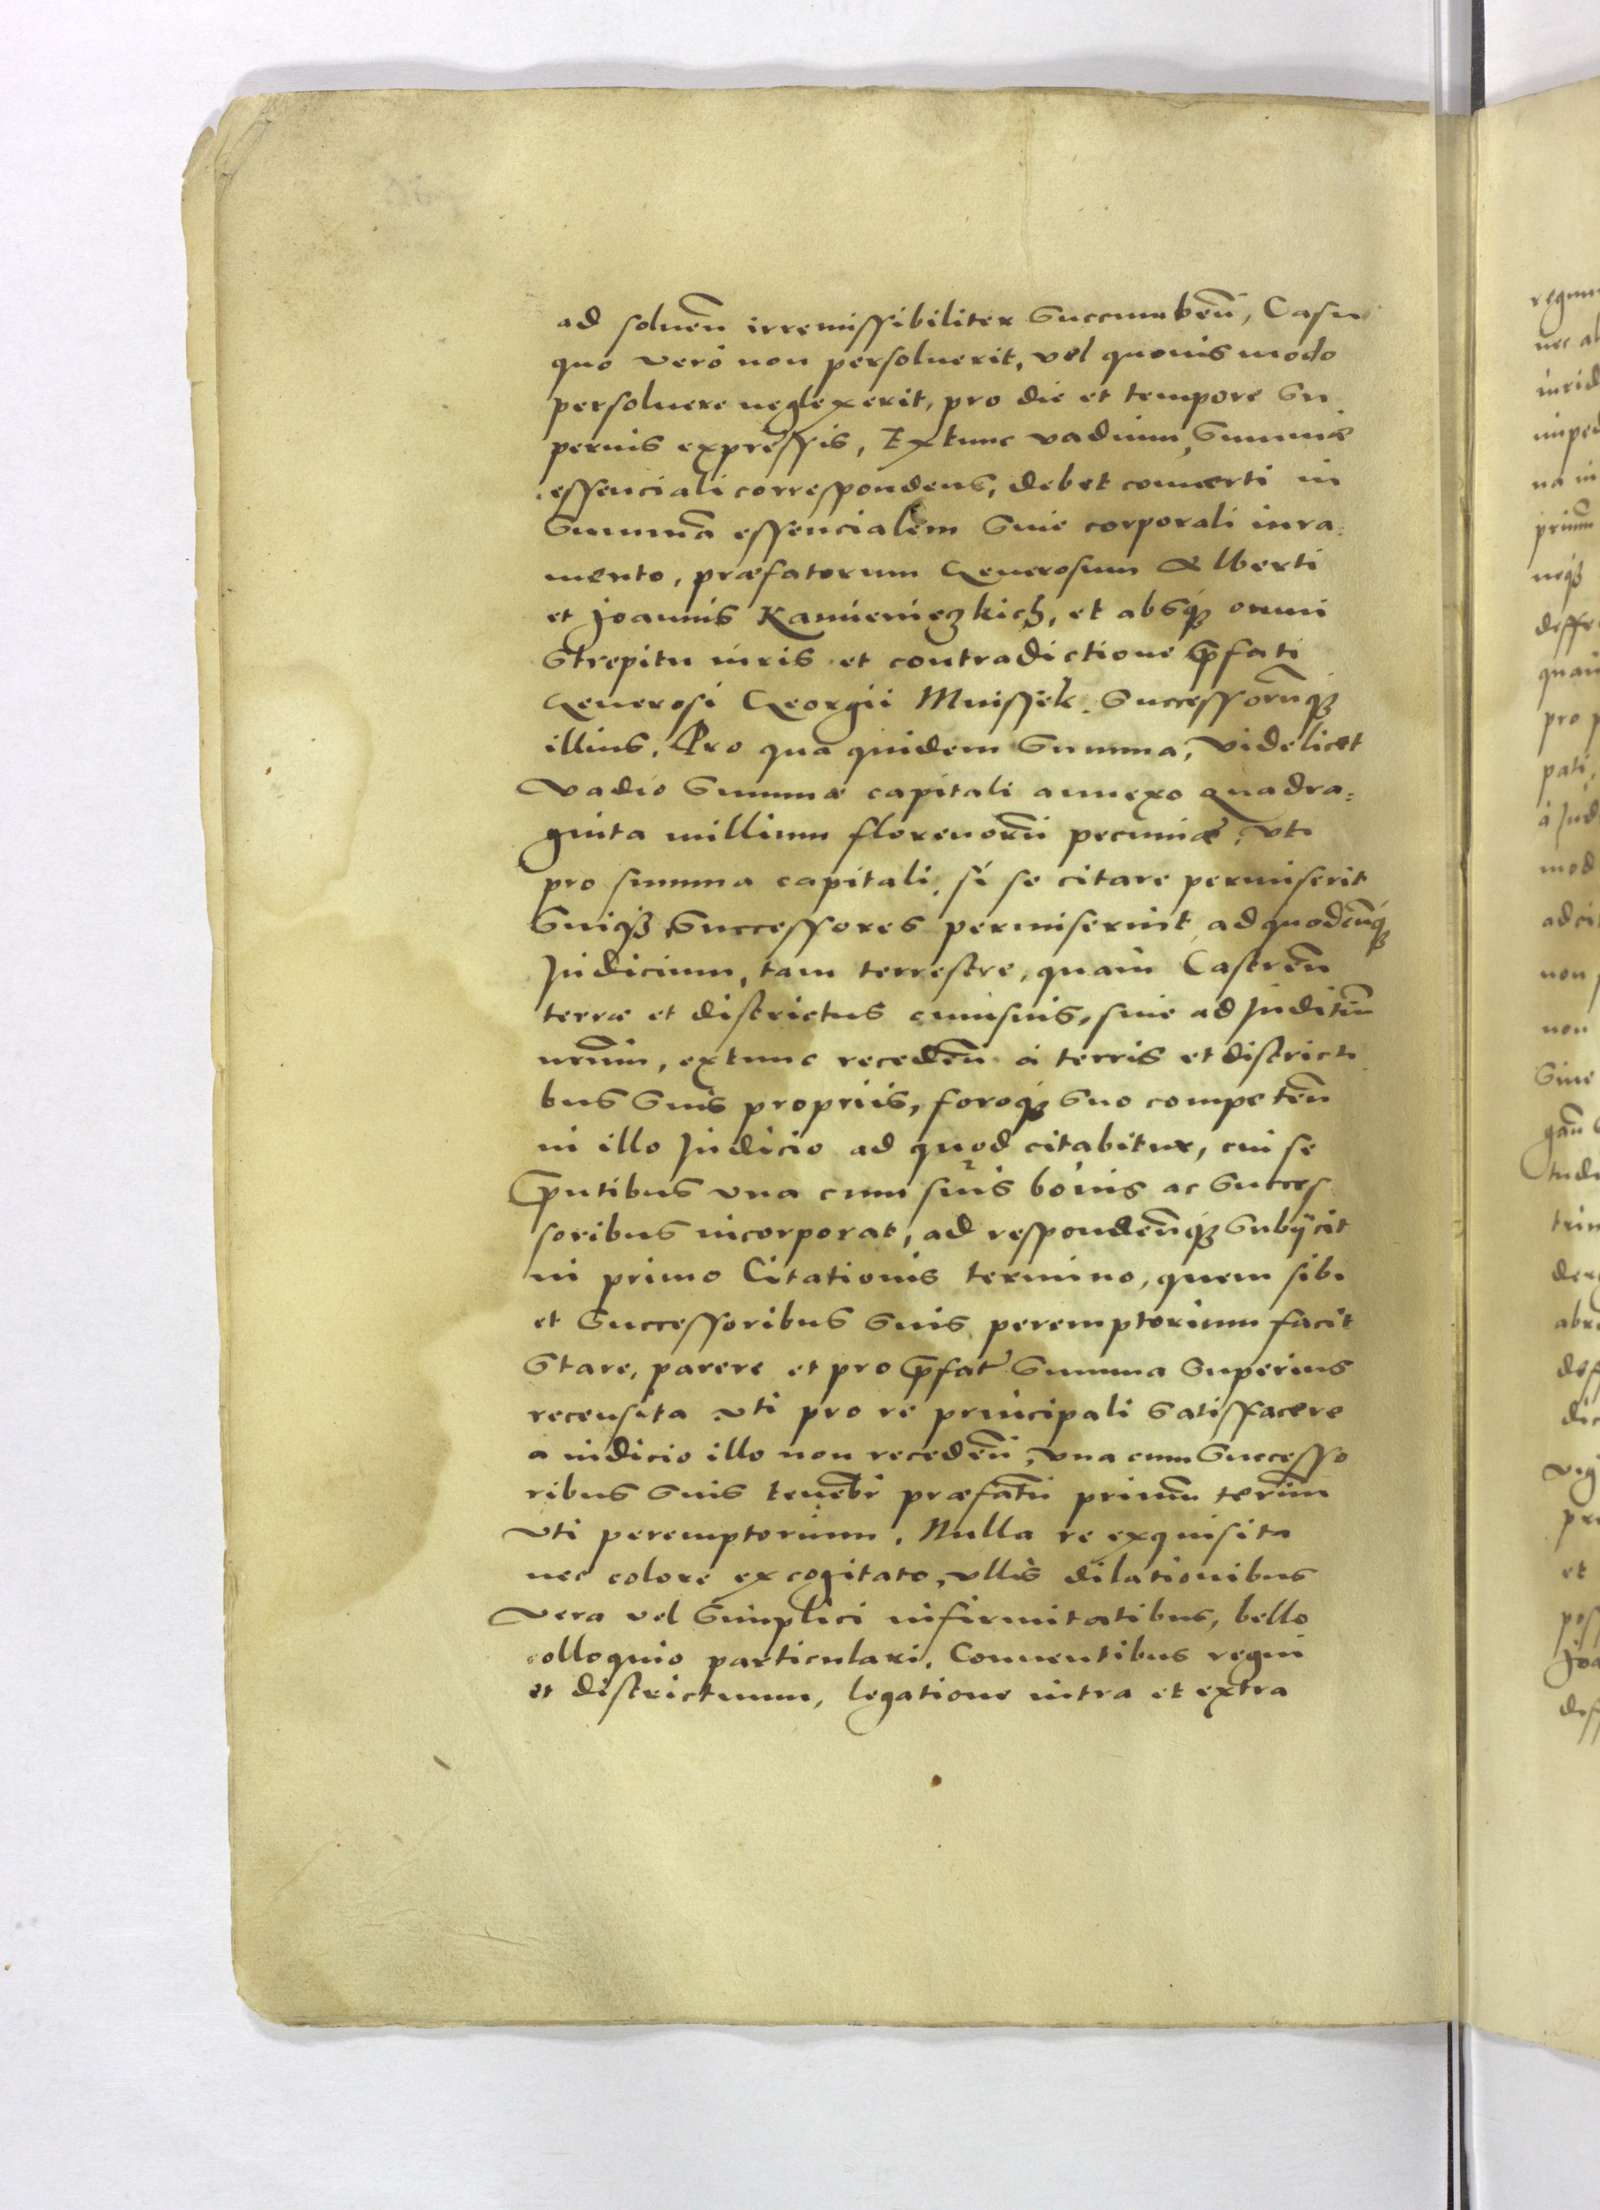 ad soluen̄ irremissibiliter succumben̄, Casu
quo verò non persoluerit, vel quouis modo
persoluere neglexerit, pro die et tempore su
perius expressis, Extunc vadium, summæ
essenciali correspondens, debet conuerti in
summā essencialem siue corporali iura,
mento, præfatorum Generosum Alberti
et Joannis Kamienieczkich, et absq₃ omni
strepitu iuris et contradictione p̄fati
Generosi Georgii Mnissek, successorūq₃
illius. Pro qua quidem summa, videlicet
vadio summæ capitali annexo quadra=
ginta millium florenorū pecuniæ, vti
pro summa capitali, si se citare permiserit
suiq₃ successores permiserint, ad quodcūq₃
Judicium, tam terrestre, quam Castren̄
terræ et districtus cuiusuis, siue ad Juditiū
nrūm, extunc receden̄ à terris et districti
bus suis propriis, foroq₃ suo competen̄
in illo Judicio ad quod citabitur, cui se
p̄ntibus vna cum suis bonis ac succes
soribus incorporat, ad respondenūq₃ subÿcit
in primo Citationis termino, quem sibi
et successoribus suis peremptorium facit
stare, parere et pro p̄fat summa superius
recensita vti pro re principali satisfacere
a iudicio illo non receden̄, vna cum successo
ribus suis tenebr præfatū primū termī
vti peremptorium. Nulla re exquisita
nec colore excogitato, vllis dilationibus
vera vel simplici infirmitatibus, bello
colloquio particulari, Conuentibus regni
et districtuum, legatione intra et extra